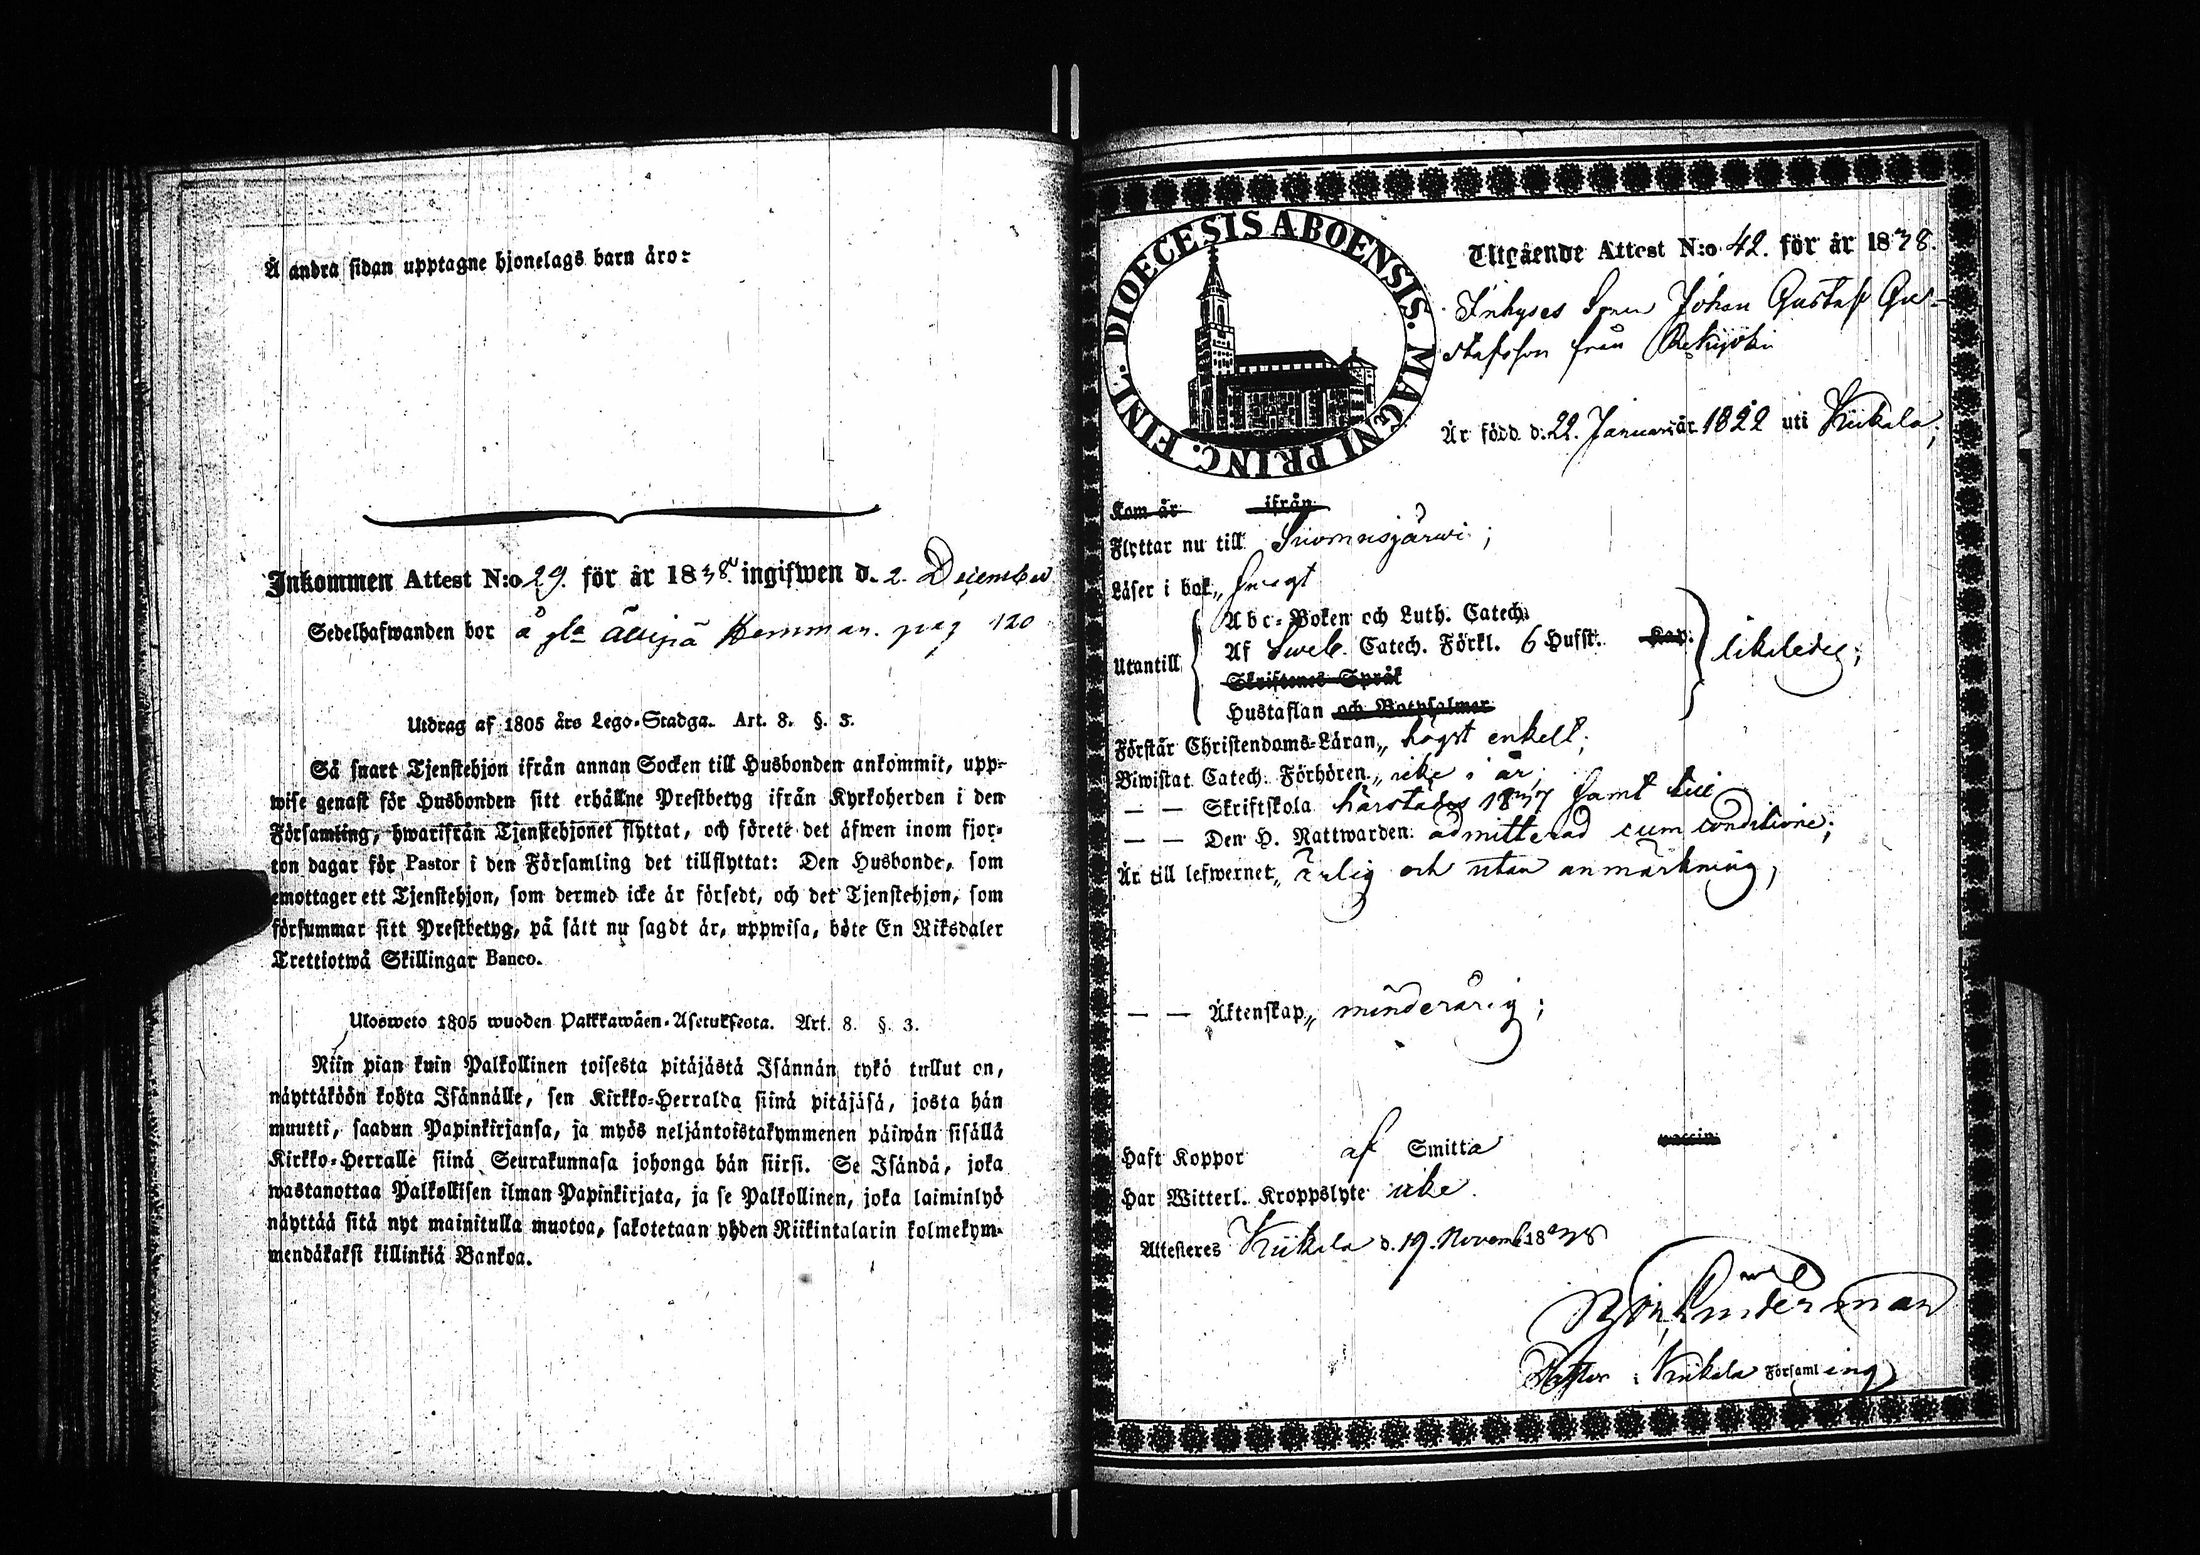 Å andra sidan upptagne hjonelags barn äro:
Inkommen Attest N:o 29. för år 1838. ingifwen d. 2. December
Sedelhafwanden bor å Hemman. pag 120
Utdrag af 1805 års Lego-Stadga. Art. 8. §. 3.
Så snart Tjenstehjon ifrån annan Socken till Husbonden ankommit, upp-
wise genast för Husbonden sitt erhållne Prestbetyg ifrån Kyrkoherden i den
Församling, hwarifrån Tjenstehjonet flyttat, och förete det äfwen inom fjor-
ton dagar för Pastor i den Församling det tillflyttat: Den Husbonde, som
emottager ett Tjenstehjon, som dermed icke är försedt, och det Tjenstehjon, som
försummar sitt Prestbetyg, på sätt nu sagdt är, uppwisa, böte En Riksdaler
Trettiotwå Skillingar Banco.
Ulosweto 1805 wuoden Palkkawäen-Asetuksesta. Art. 8. §. 3.
Niin pian kuin Palkollinen toisesta pitäjästä Isännän tykö tullut on,
näyttäköön kohta Isännälle, sen Kirkko-Herralda siinä pitäjäsä, josta hän
muutti, saadun Papinkirjansa, ja myös neljäntoistakymmenen päiwän sisällä
Kirkko-Herralle siinä Seurakunnasa johonga hän siirsi. Se Isändä, joka
wastanottaa Palkollisen ilman Papinkirjata, ja se Palkollinen, joka laiminlyö
näyttää sitä nyt mainitulla muotoa, sakotetaan yhden Riikintalarin kolmekym-
mendäkaksi killinkiä Bankoa.
DIOECESIS ABOENSIS. MAGNI PRINC. FINL.
Utgående Attest N:o 42. för år 1838.
Inhyses Sonen Johan Gustaf Gu-
stafsson från Rekijoki
Är född d. 22. Januari år 1822 uti Kiikala;
Kom år ifrån
Flyttar nu till Suomusjärwi;
Läser i bok„ swagt
Abc-Boken och Luth. Catech.
Utantill Af Sweb. Catech. Förkl. 6 Hufst. Kap. likaledes;
Skriftenes Språk
Hustaflan och Botpsalmer
Förstår Christendoms-Läran„ högst enkelt;
Biwistat Catech. Förhören„ icke i år;
— — Skriftskola härstädes 1837 samt till
— — Den H. Nattwarden. admitterad cum conditione;
Är till lefwernet„ ärlig och utan anmärkning;
— — Äktenskap„ minderårig;
Haft Koppor af Smitta vaccin
Har Witterl. Kroppslyte icke.
Attesteras Kiikala d. 19. Novemb. 1838
Pastor i Kiikala Församling